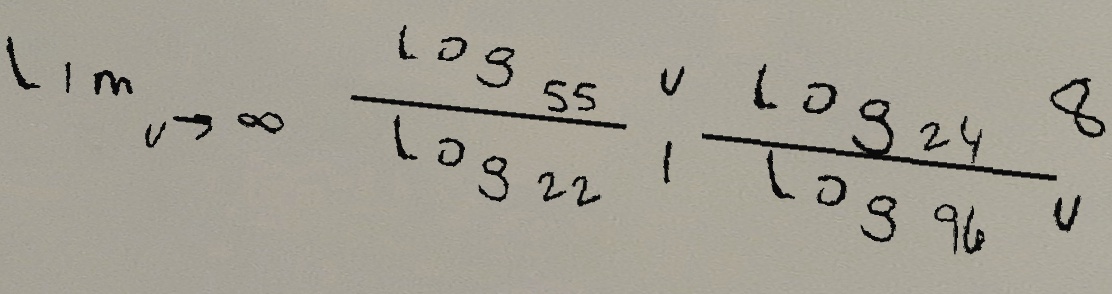 \lim_{v \to \infty} \frac{\log_{55} v}{\log_{22} 1} \frac{\log_{24} 8}{\log_{96} v}